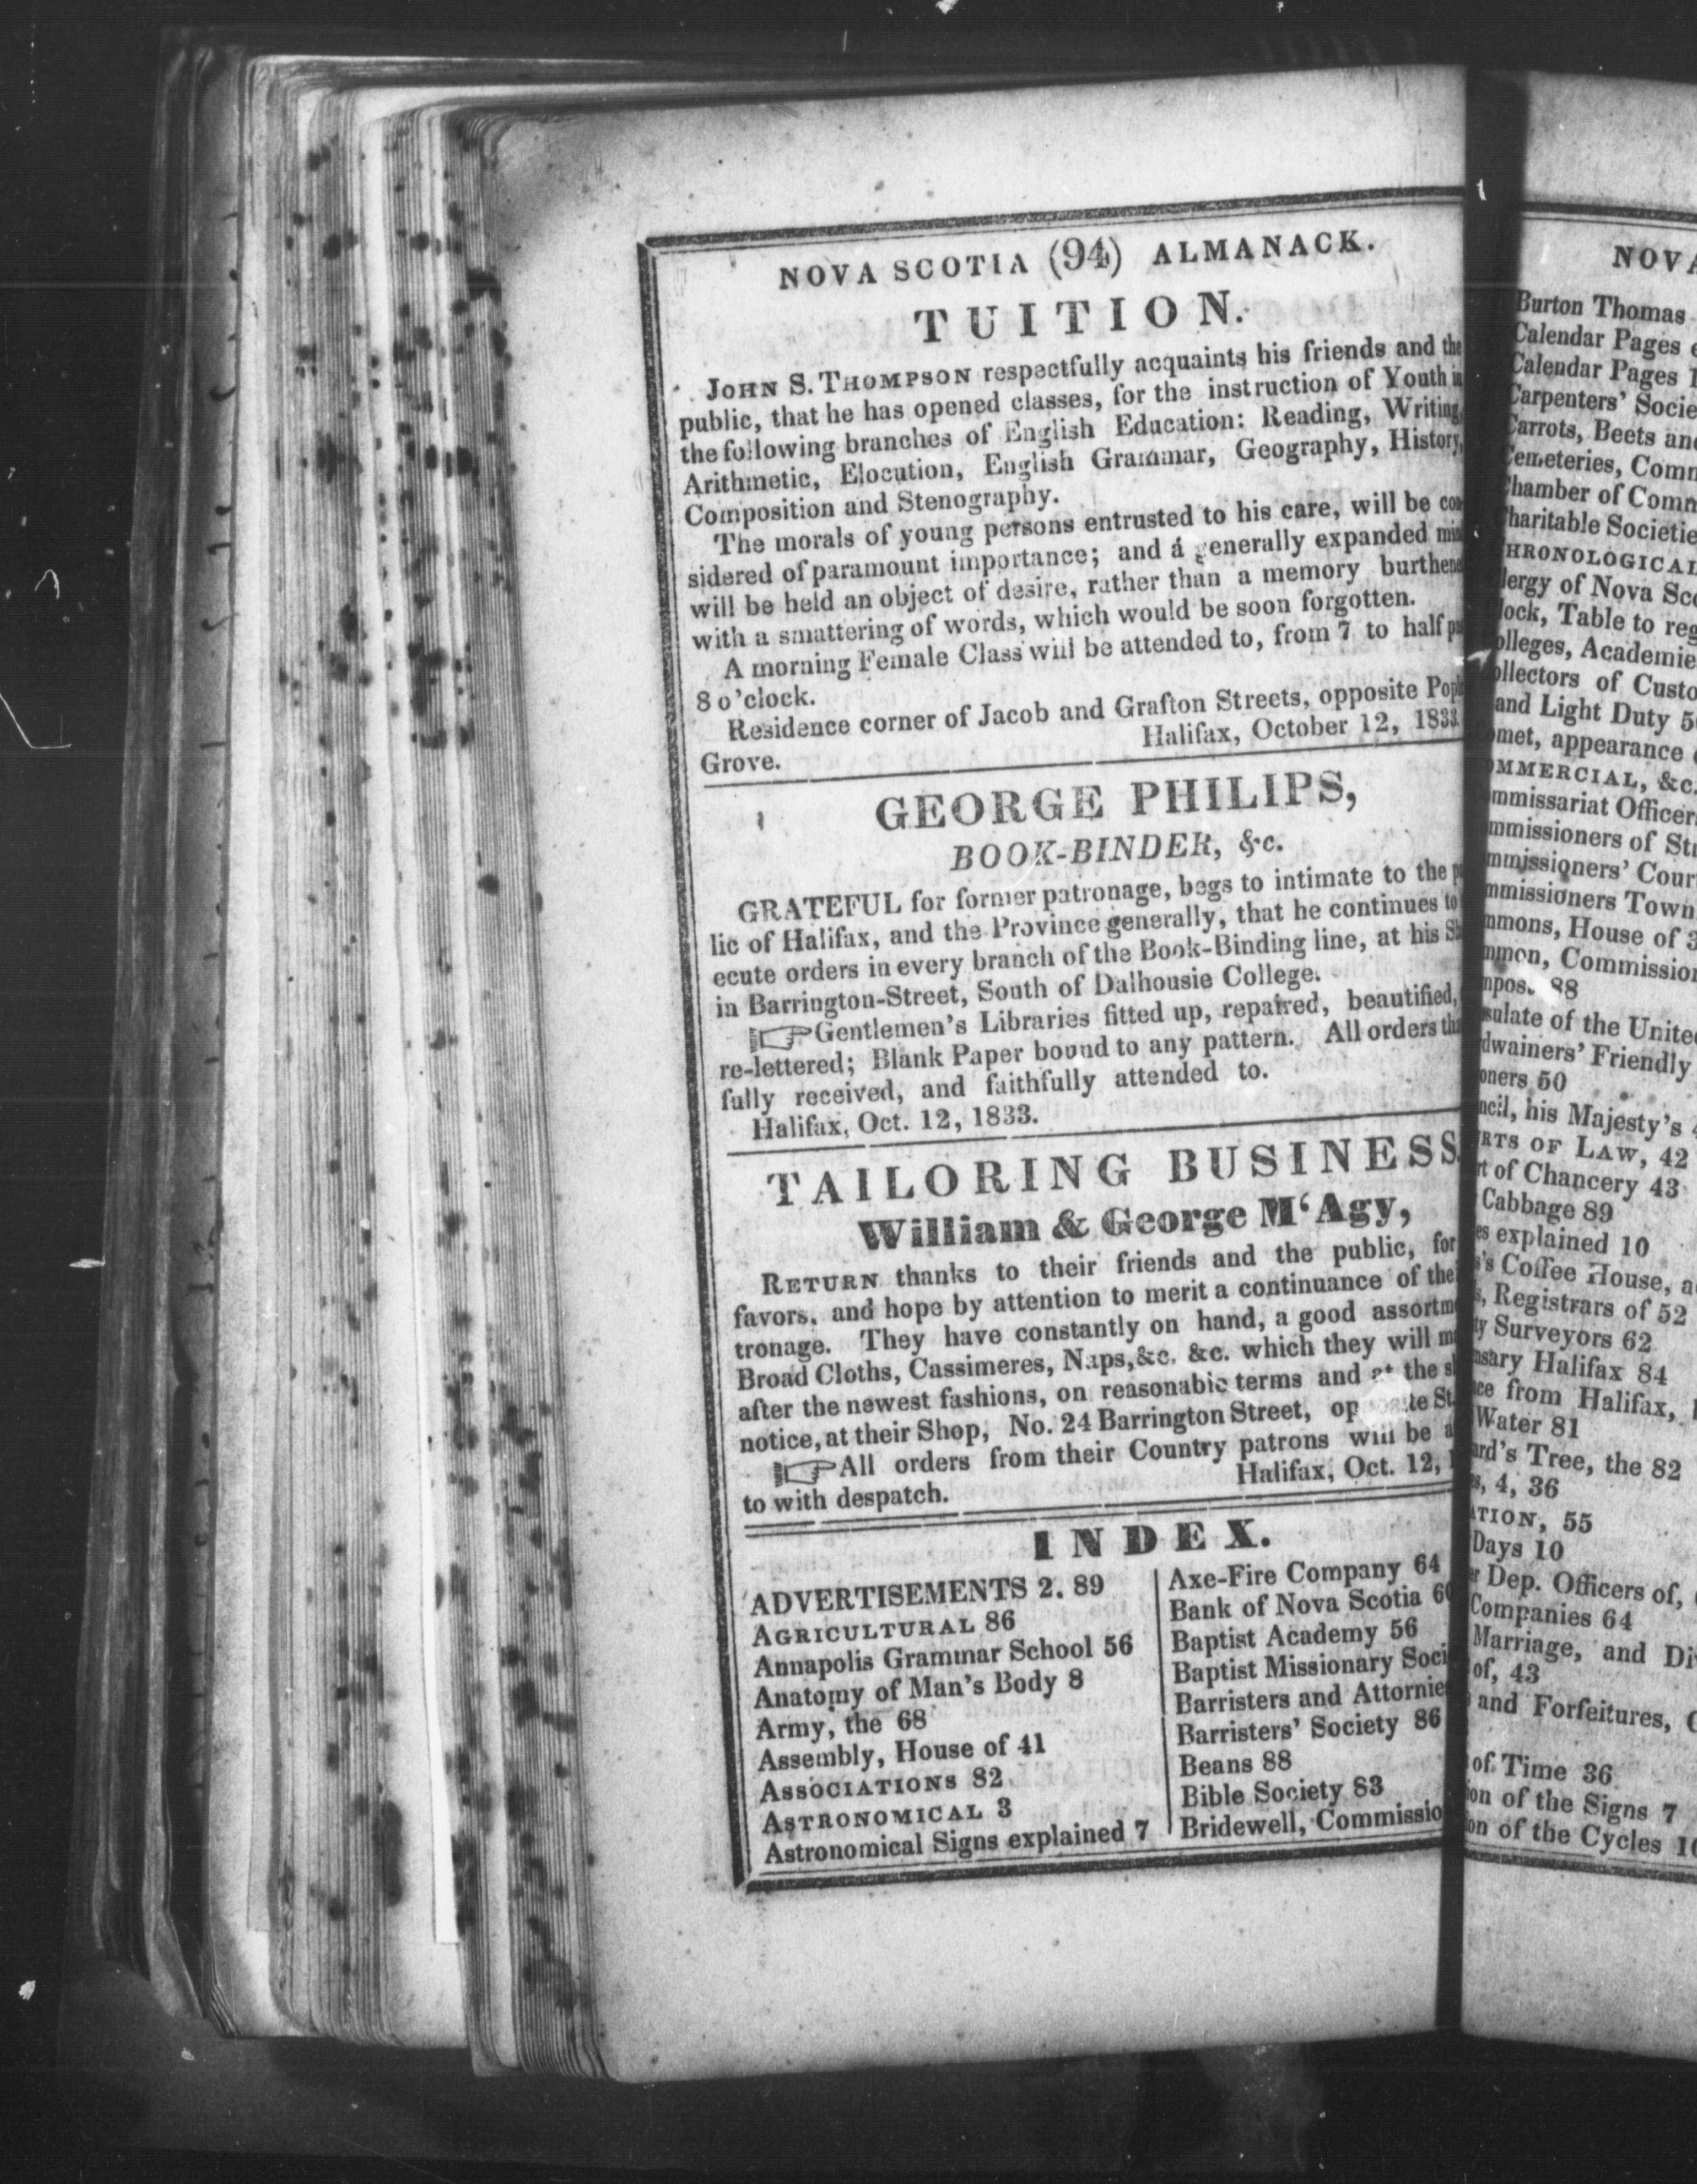 NOVA SCOTIA (94) ALMANACK.
TUITION.
JOHN S. THOMPSON respectfully acquaints his friends and the
public, that he has opened classes, for the instruction of Youth in
the following branches of English Education: Reading, Writing,
Arithmetic, Elocution, English Grammar, Geography, History,
Composition and Stenography.
The morals of young persons entrusted to his care, will be con
sidered of paramount importance; and a generally expanded min
will be held an object of desire, rather than a memory burthene
with a smattering of words, which would be soon forgotten.
A morning Female Class will be attended to, from 7 to half pa
8 o'clock.
Residence corner of Jacob and Grafton Streets, opposite Popl
Grove.
Halifax, October 12, 1833.
GEORGE PHILIPS,
BOOK-BINDER, &c.
GRATEFUL for former patronage, begs to intimate to the p
lic of Halifax, and the Province generally, that he continues to
ecute orders in every branch of the Book-Binding line, at his Sh
in Barrington-Street, South of Dalhousie College.
☞Gentlemen's Libraries fitted up, repaired, beautified,
re-lettered; Blank Paper bound to any pattern. All orders tha
fully received, and faithfully attended to.
Halifax, Oct. 12, 1833.
TAILORING BUSINESS.
William & George M‘Agy,
RETURN thanks to their friends and the public, for
favors, and hope by attention to merit a continuance of thei
tronage. They have constantly on hand, a good assortme
Broad Cloths, Cassimeres, Naps,&c. &c. which they will ma
after the newest fashions, on reasonable terms and at the s
notice, at their Shop, No. 24 Barrington Street, op te St.
☞All orders from their Country patrons will be a
to with despatch.
Halifax, Oct. 12, 1
INDEX.
ADVERTISEMENTS 2. 89
AGRICULTURAL 86
Annapolis Grammar School 56
Anatomy of Man's Body 8
Army, the 68
Assembly, House of 41
ASSOCIATIONS 82
ASTRONOMICAL 3
Astronomical Signs explained 7
Axe-Fire Company 64
Bank of Nova Scotia 60
Baptist Academy 56
Baptist Missionary Soci
Barristers and Attornies
Barristers' Society 86
Beans 88
Bible Society 83
Bridewell, Commissio
NOVA
Burton Thomas
Calendar Pages e
Calendar Pages 1
Carpenters' Socie
Carrots, Beets an
Cemeteries, Comm
Chamber of Comm
Charitable Societie
HRONOLOGICAL
lergy of Nova Sco
lock, Table to reg
olleges, Academie
ollectors of Custo
and Light Duty 5
omet, appearance
OMMERCIAL, &c.
mmissariat Officer
mmissioners of St
mmissioners' Cour
mmissioners Town
mmons, House of 3
mmon, Commission
mpost 88
nsulate of the Unite
rdwainers' Friendly
oners 50
ncil, his Majesty's 4
RTS OF LAW, 42
rt of Chancery 43
Cabbage 89
es explained 10
's Coffee House, a
s, Registrars of 52
ty Surveyors 62
nsary Halifax 84
ce from Halifax,
Water 81
ard's Tree, the 82
s, 4, 36
ATION, 55
Days 10
r Dep. Officers of,
Companies 64
Marriage, and Di
of, 43
and Forfeitures, C
of Time 36
on of the Signs 7
on of the Cycles 10